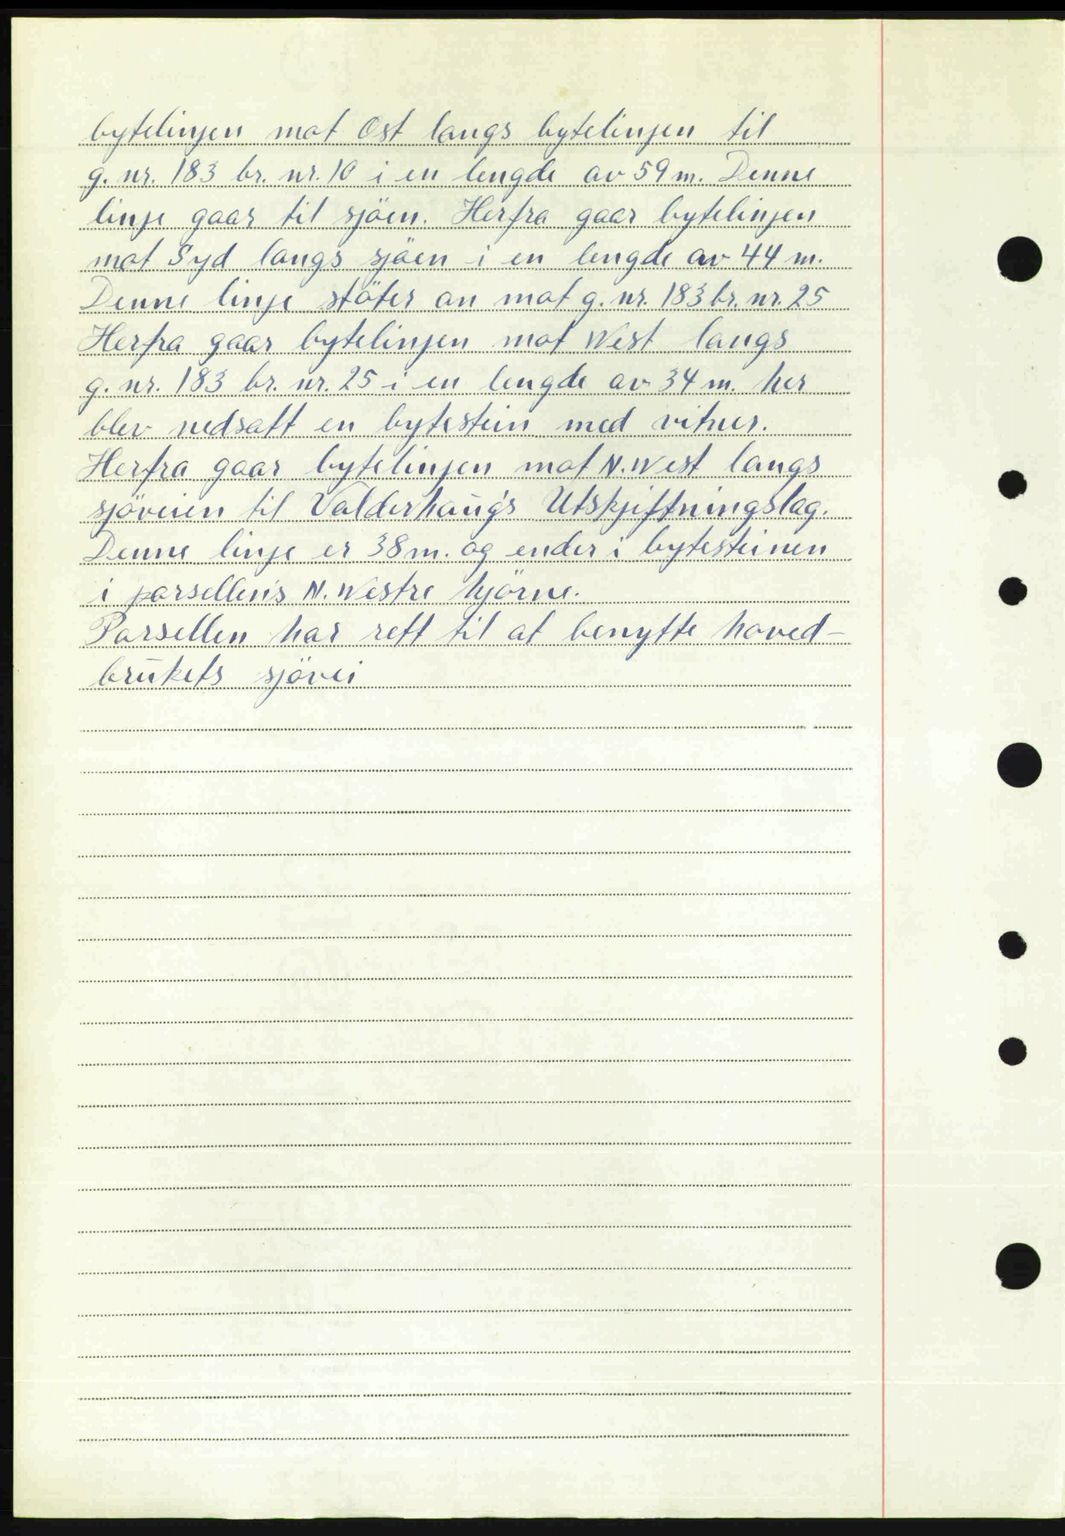 bytelinjen mot Ost langs bytelinjen til
g. nr. 183 br. nr. 10 i en lengde av 59 m. Denne
linje gaar til sjöen. Herfra gaar bytelinjen
mot Syd langs sjöen i en lengde av 44 m.
Denne linje stöter an mot g. nr. 183 br. nr. 25
Herfra gaar bytelinjen mot West langs
g. nr. 183 br. nr. 25 i en lengde av 34 m. her
blev nedsatt en bytestein med vitner.
Herfra gaar bytelinjen mot N. West langs
sjöveien til Valderhaug's Utskjiftningslag.
Denne linje er 38 m. og ender i bytesteinen
i parsellens N. Westre hjörne.
Parsellen har rett til at benytte hoved-
brukets sjövei